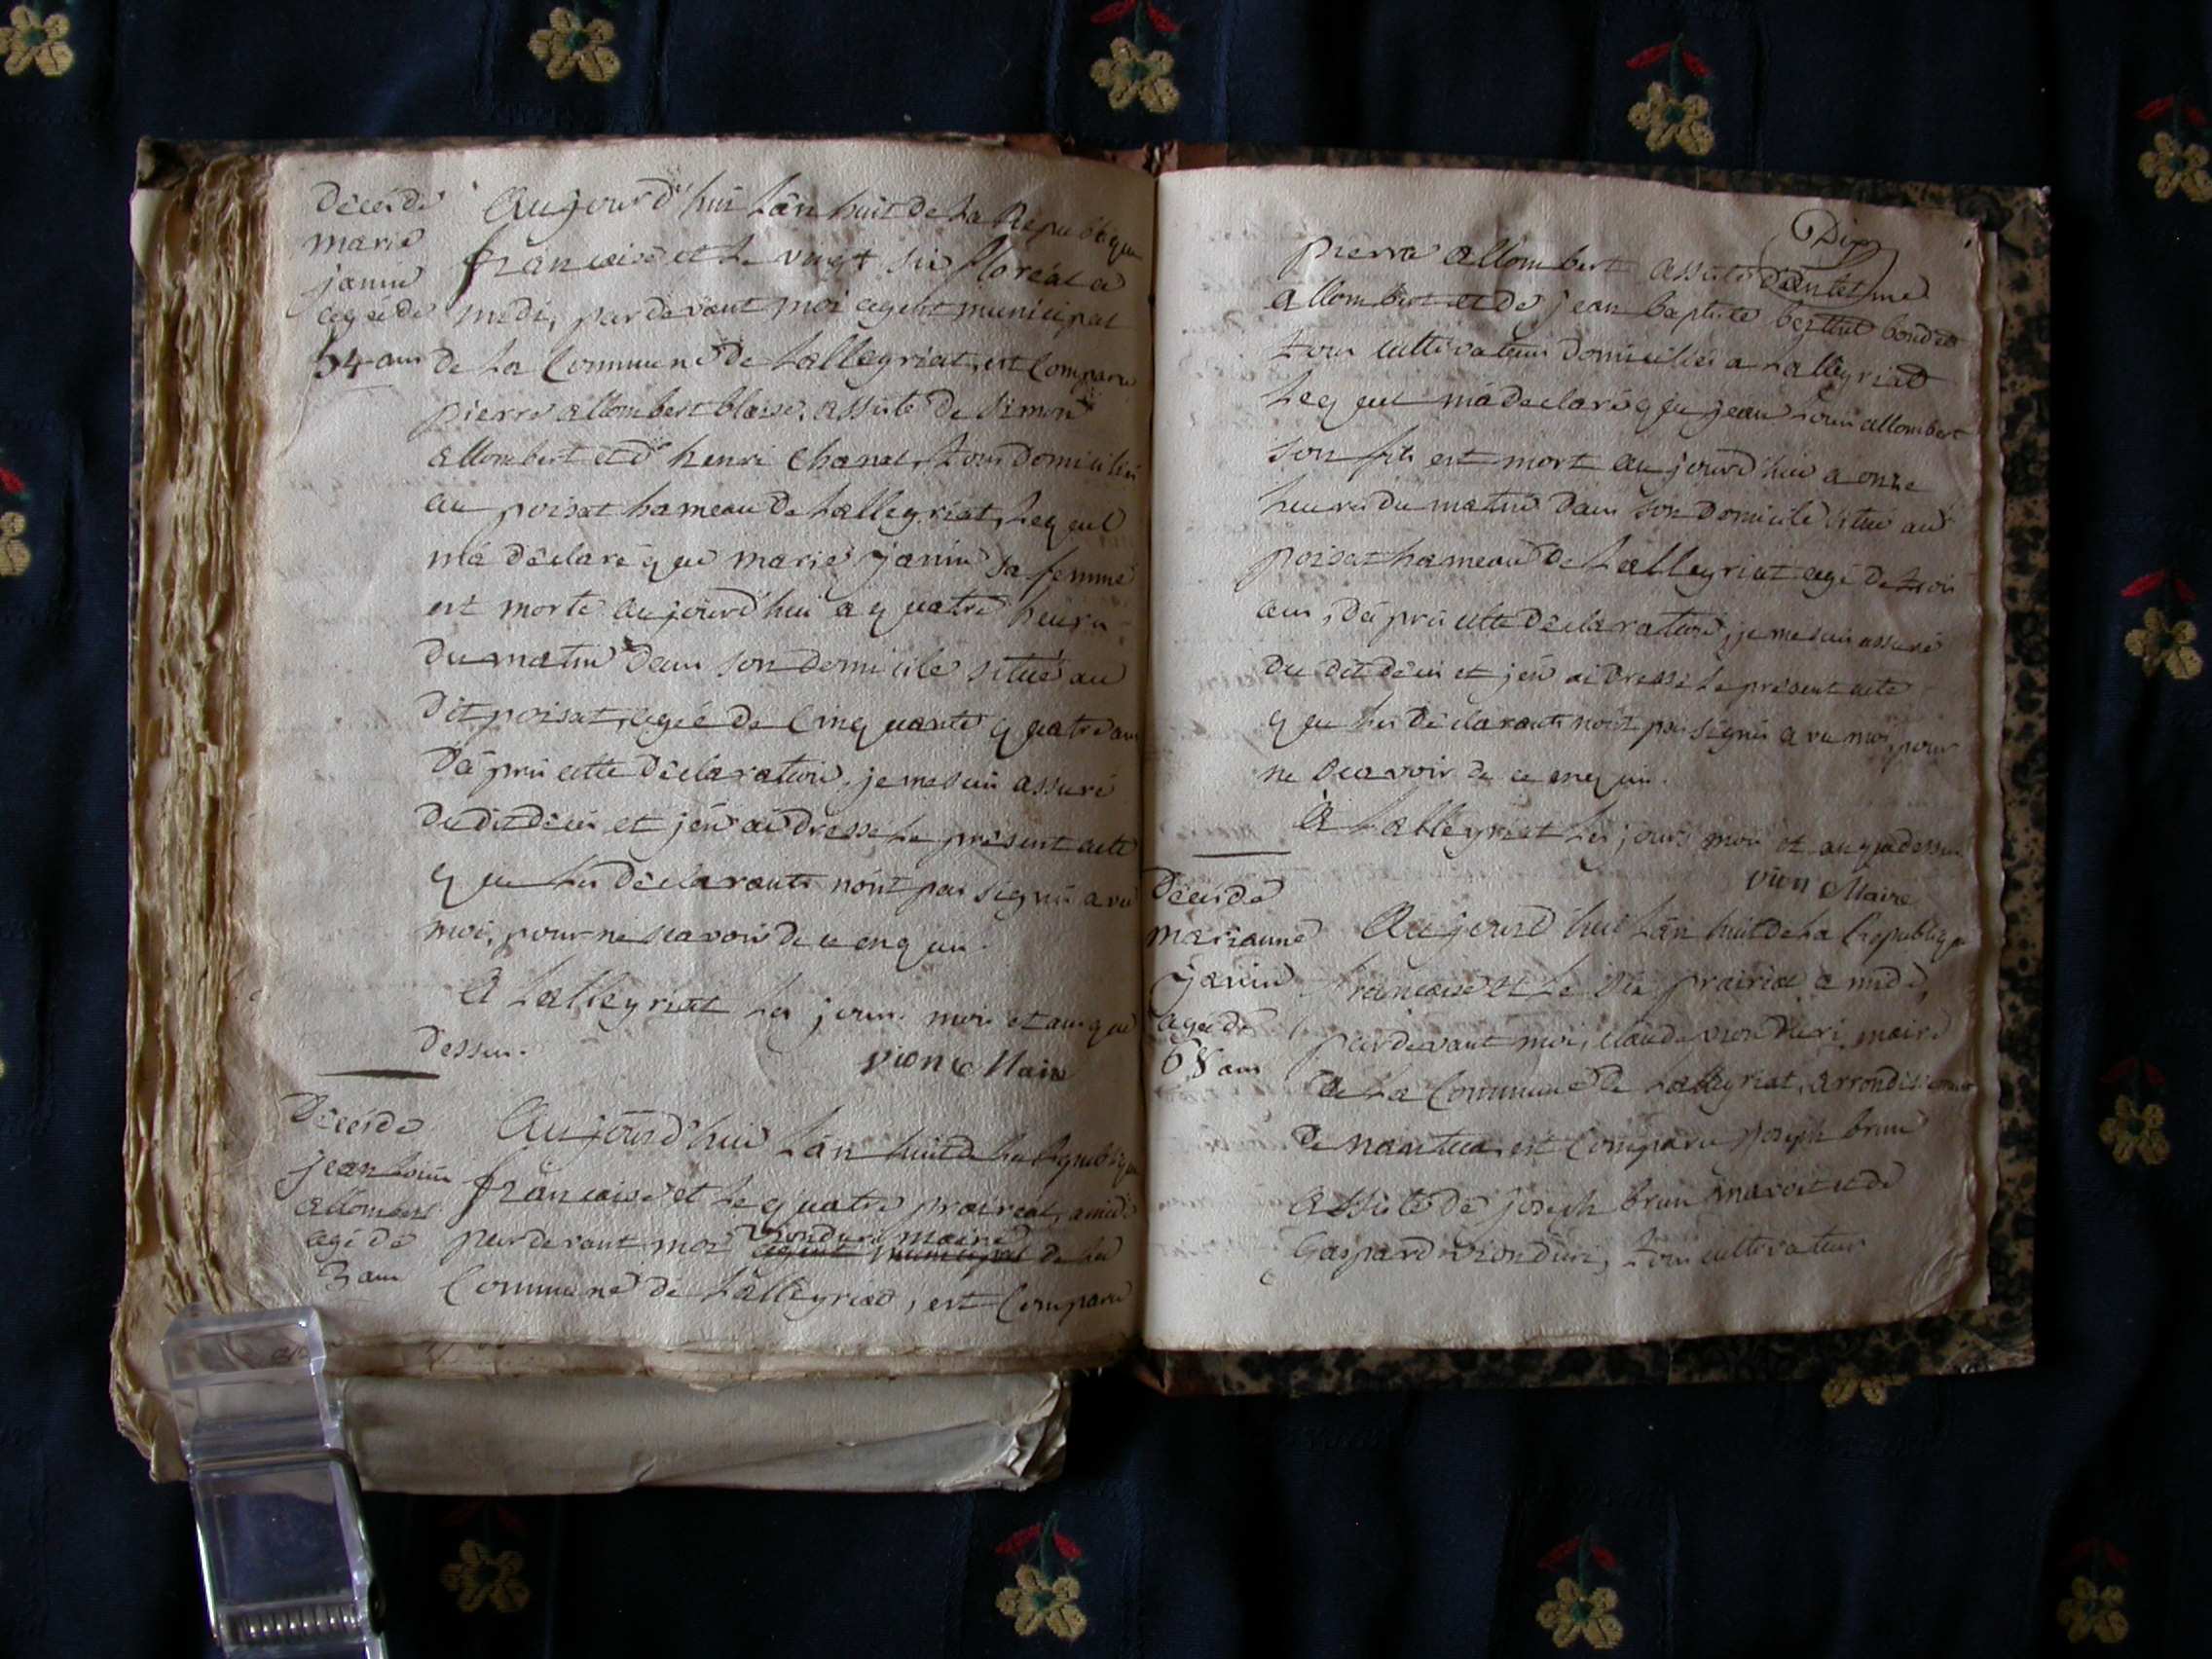 Décés de
marie
janin
agée de
54 ans
Aujourd'hui l'an huit de la Republique
francaise et le vingt six floréal a
midi, pardevant moi agent municipal
de la Commune de Lalleyriat, est Comparu
pierre allombert blaise, assisté de Simon
allombert et d'henri Chanal, tous Domiciliés
au poisat hameau de Lalleyriat, Lequel
m'a déclaré que marie janin sa femme
est morte aujourd'hui a quatre heures
du matin dans son domicile situé au
dit poisat, agée de Cinquante quatre ans
d'aprés cette déclaration, je me suis assuré
du dit décés et j'en ai dressé le présent acte
que les déclarants n'ont pas signé avec
moi, pour ne scavoir de ce enquis.
A Lalleyriat les jours mois et an que
dessus.
vion Maire
Décés de
jean louis
allombert
agé de
3 ans
Aujourd'hui l'an huit de la Republique
francaise et le quatre prairial, a midi
pardevant moi viondury maire
agent municipal de la
Commune de Lalleyriat, est Comparu
Dix
pierre allombert assisté d'antelme
allombert et de jean baptiste berthet bondet
tous cultivateurs domiciliés a Lalleyriat
Lequel m'a déclaré que jean louis allombert
son fils est mort aujourd'hui a onze
heures du matin dans son domicile situé au
poisat hameau de Lalleyriat agé de trois
ans, d'aprés cette déclaration, je me suis assuré
du dit décés et j'en ai dressé le présent acte
que les déclarants n'ont pas signé avec moi, pour
ne scavoir de ce enquis.
A Lalleyriat les jours mois et an que dessus
vion Maire
Décés de
marianne
janin
agée de
68 ans
Aujourd'hui l'an huit de la Republique
francaise et le six prairial a midi,
pardevant moi, claude vion Duri maire
de la Commune de Lalleyriat, arrondissement
de nantua, est Comparu joseph brun
assisté de joseph brun maroit et de
Gaspard viondury, tous cultivateurs